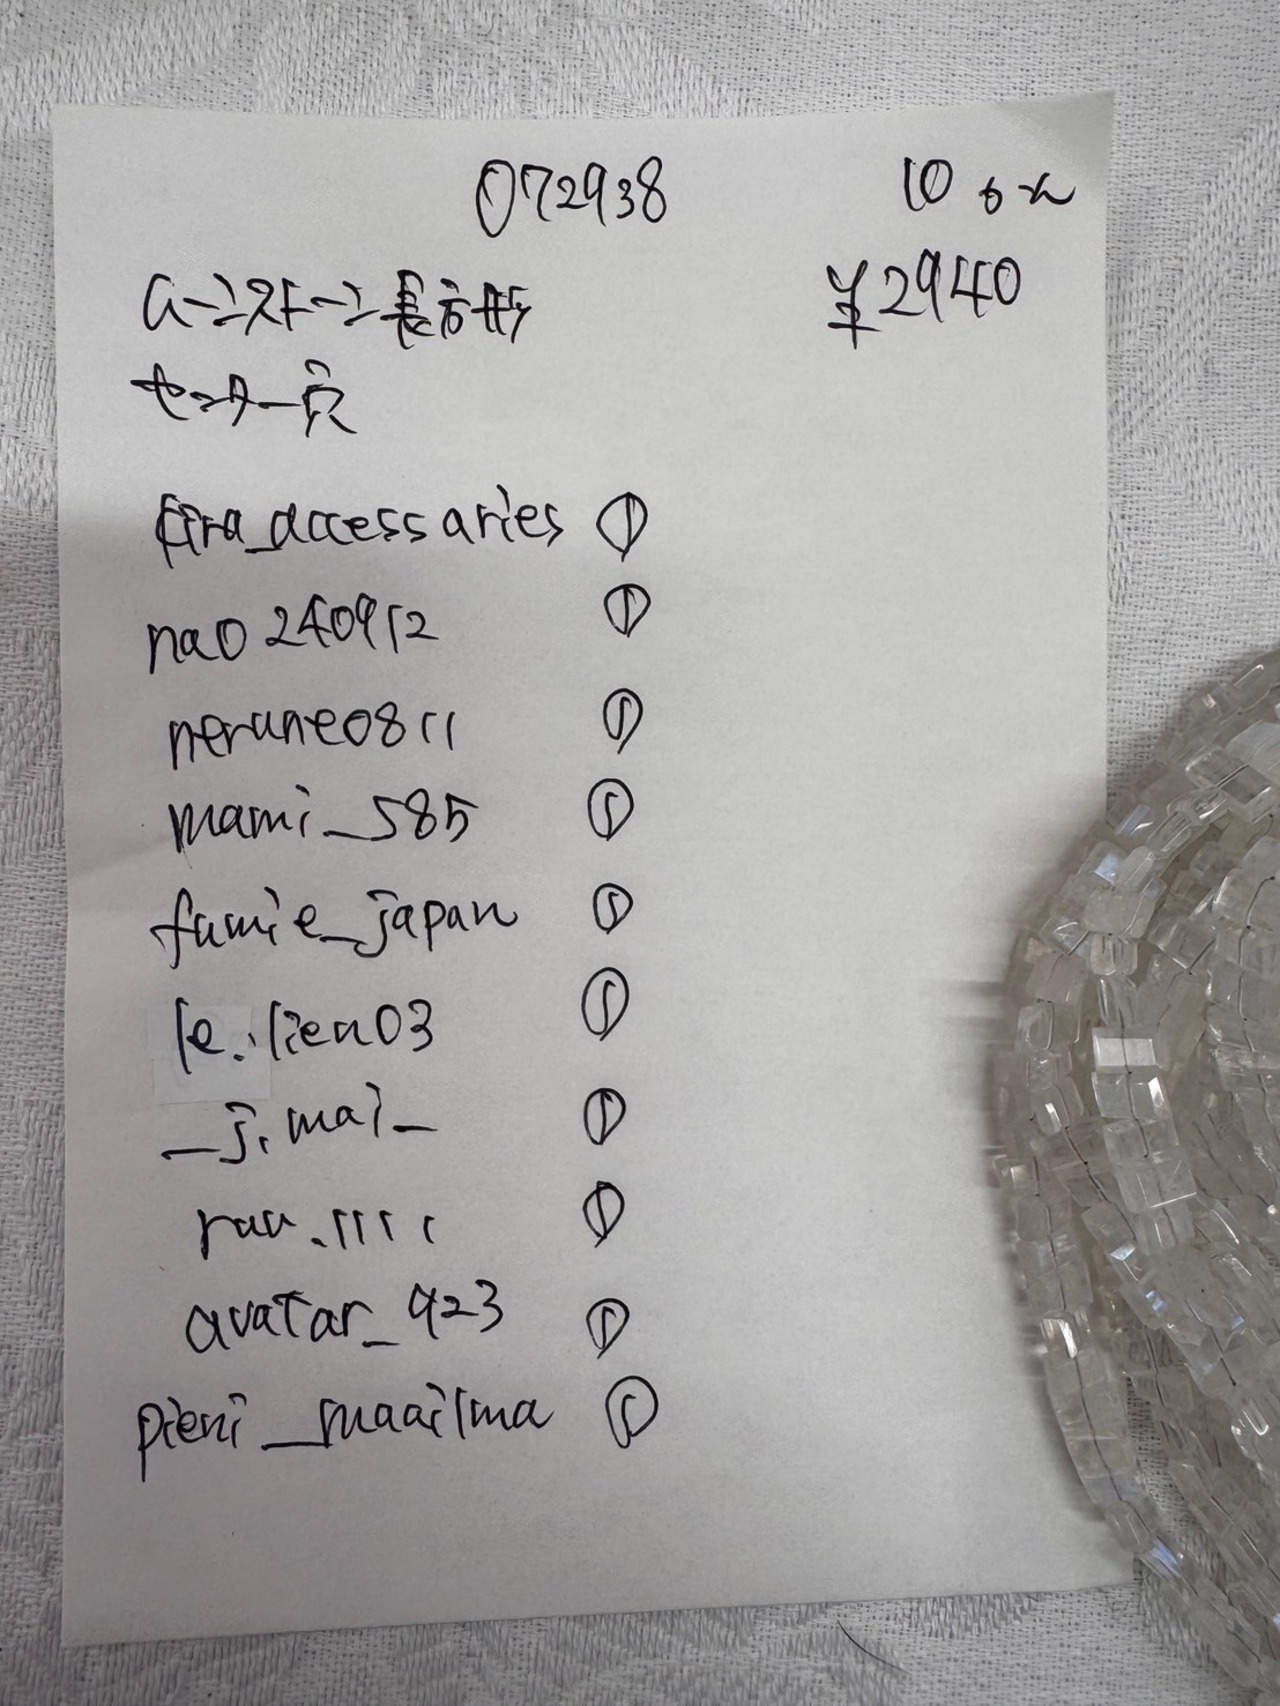 072938 10 6 m
¥2940
ムーンストーン長方形
センター穴
kira_accessaries ①
nao240912 ①
nerune0811 ①
mami_585 ①
fumie_japan ①
le.lien03 ①
_j.mai_ ①
rau.1111 ①
avatar_423 ①
pieni_maailma ①